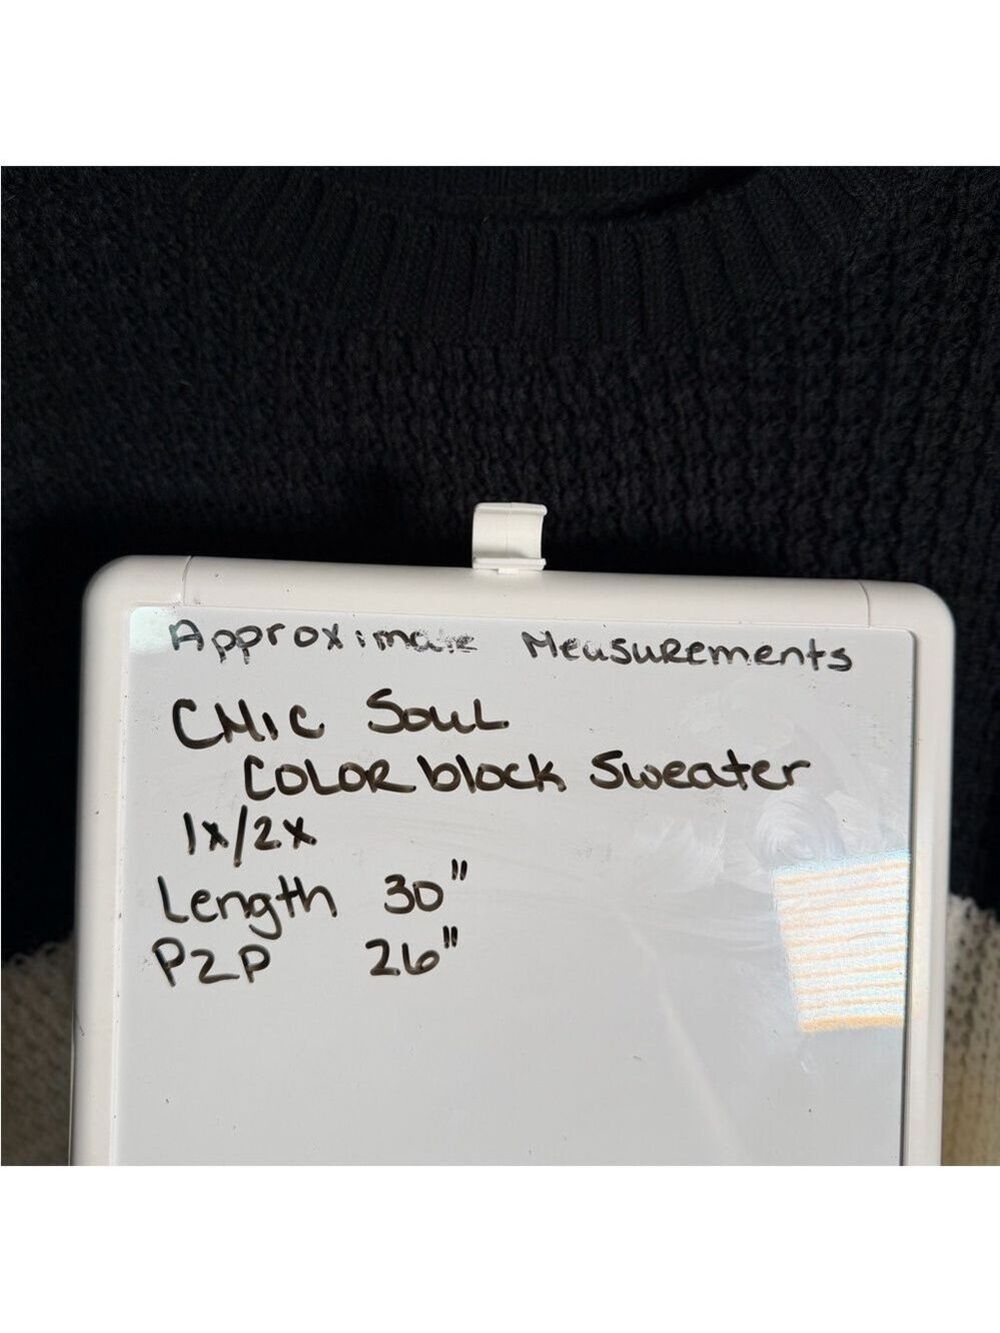 Approximate Measurements
CHIC SOUL
COLOR block Sweater
1x/2x
Length 30"
P2P 26"